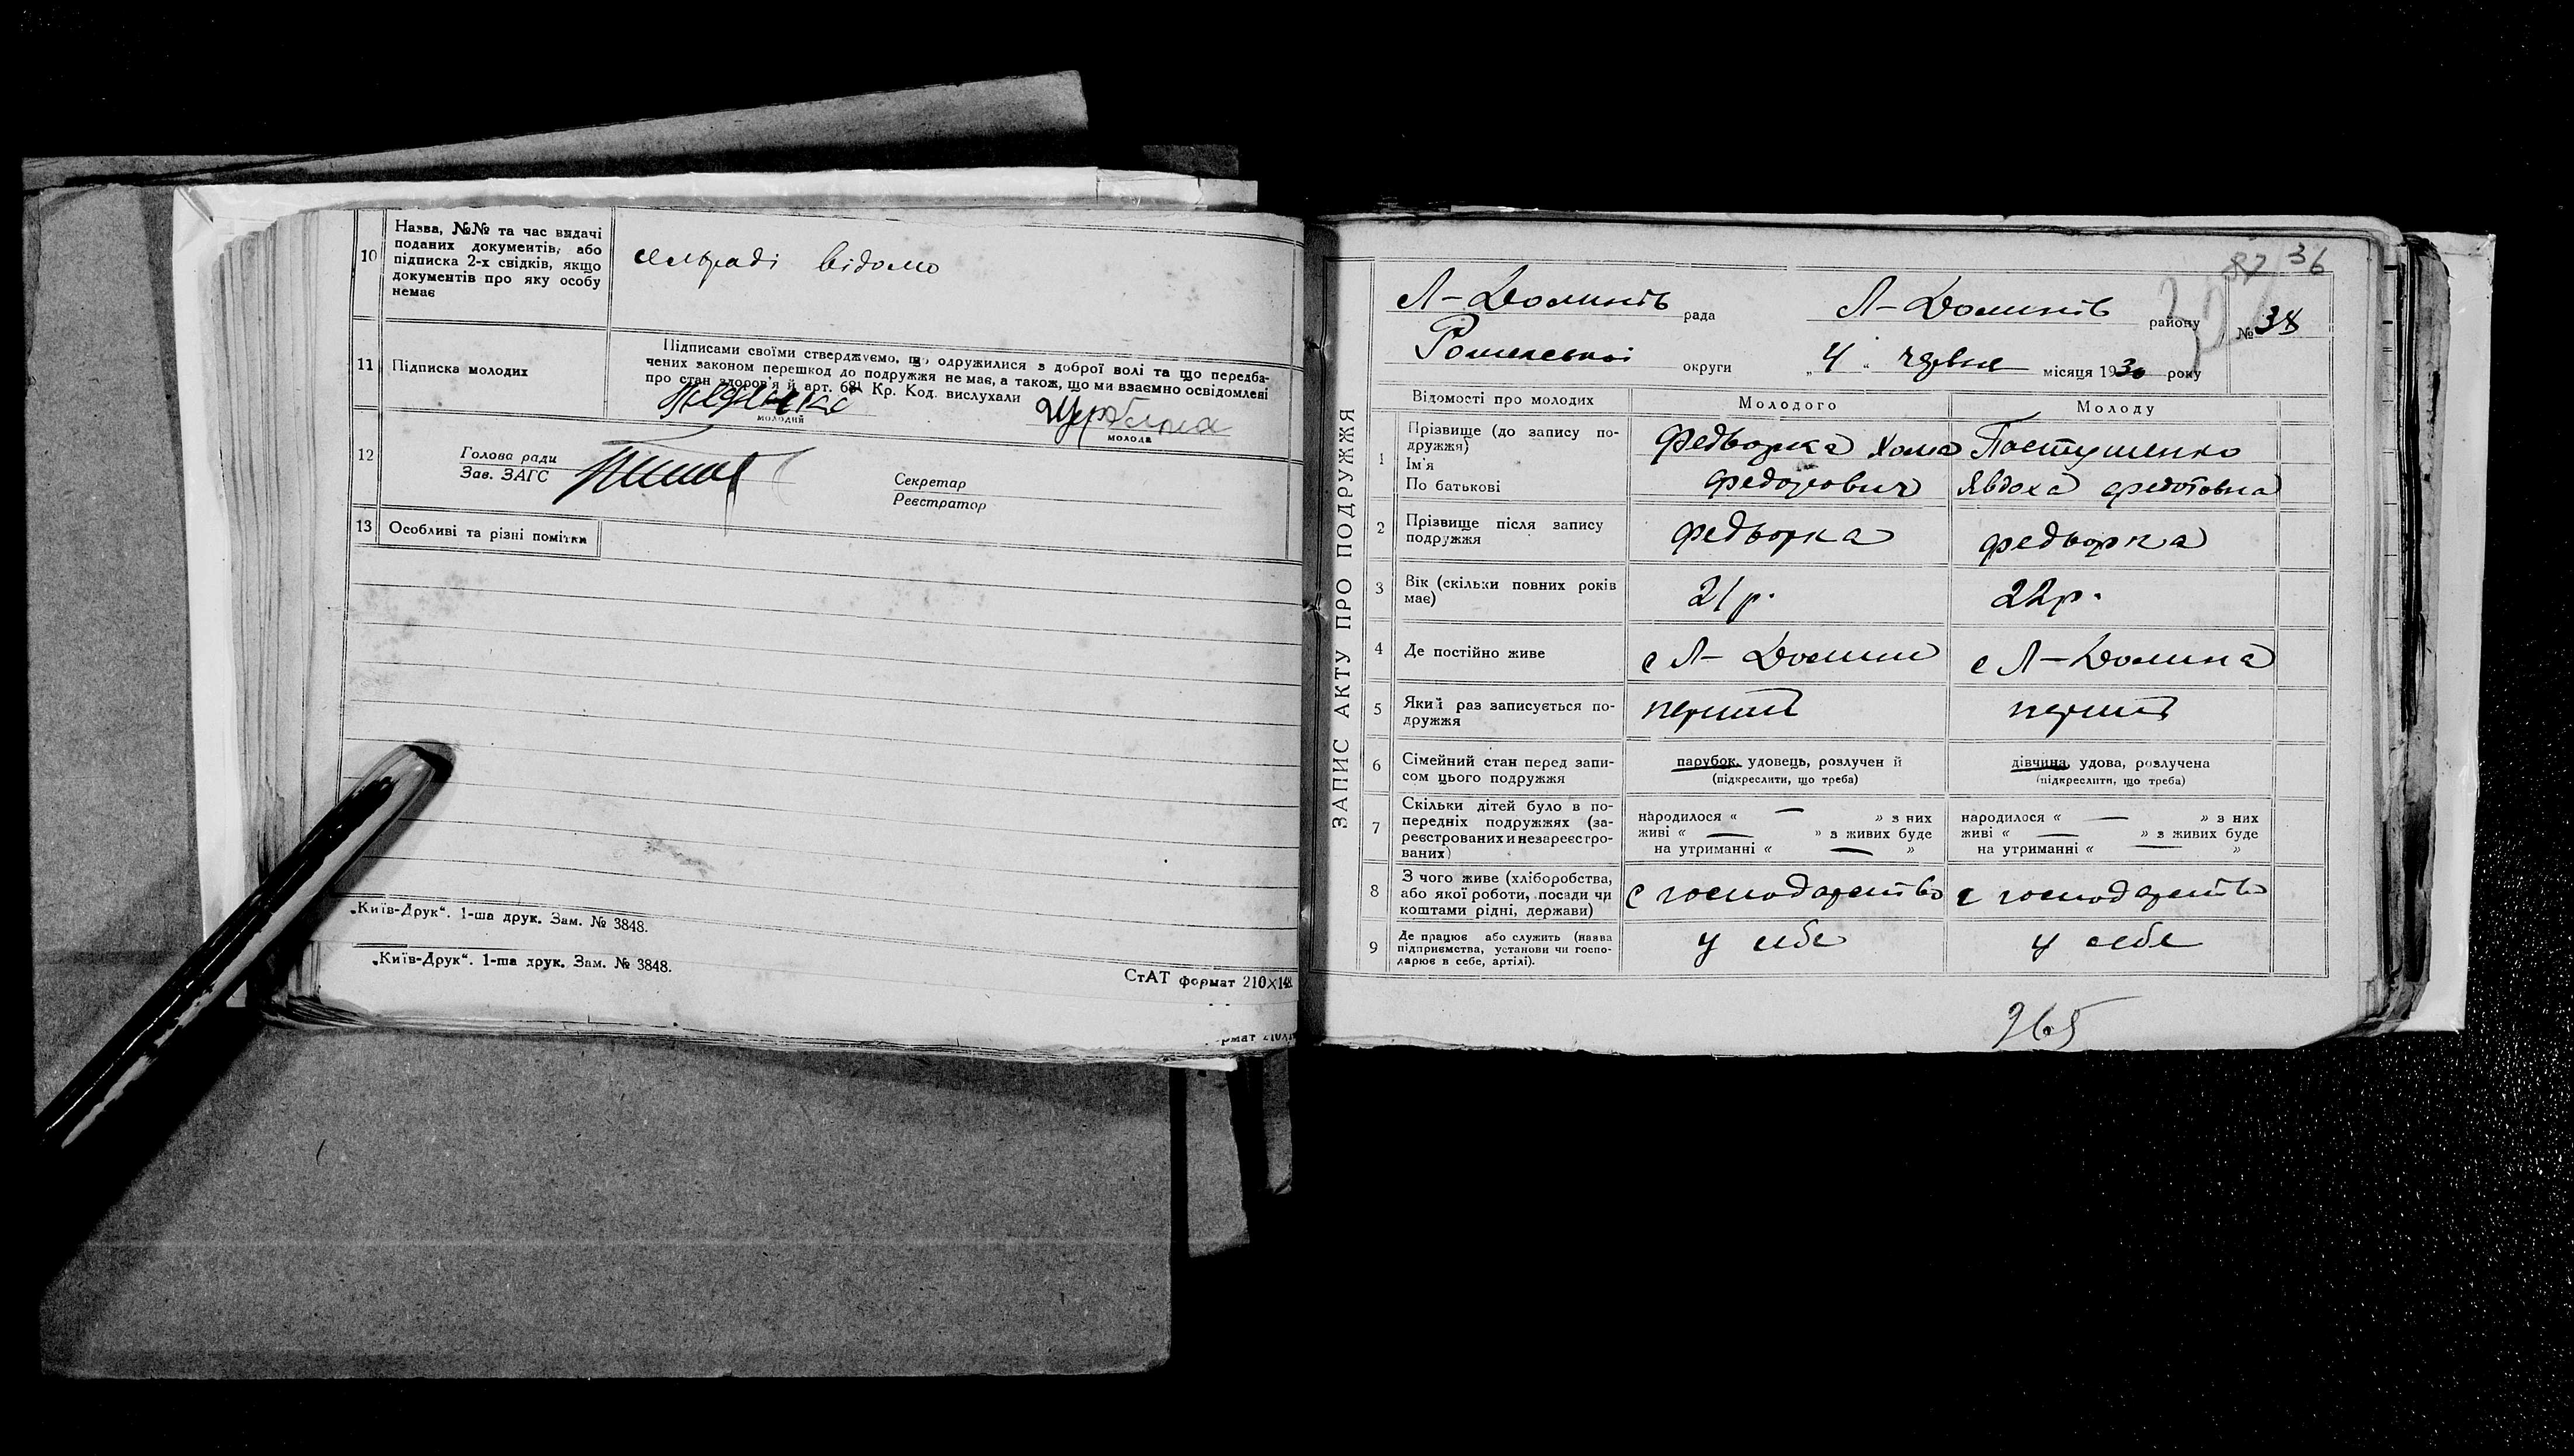 10
Назва, №№ та час видачі
поданих документів, або
підписка 2-х свідків, якщо
документів про яку особу
немає
сельраді відомо
11
Підписка молодих
Підписами своїми стверджуємо, що одружилися з доброї волі та що передба-
чених законом перешкод до подружжя не має, а також, що ми взаємно освідомлені
про стан здоров'я й арт. 681 Кр. Код. вислухали
молодий
молода
12
Голова ради
Зав. ЗАГС
Секретар
Реєстратор
13
Особливі та різні помітки
„Київ-Друк“. 1-ша друк. Зам. № 3848.
„Київ-Друк“. 1-ша друк. Зам. № 3848.
СтАТ формат 210×148
ЗАПИС АКТУ ПРО ПОДРУЖЖЯ
87 36
Л-Долинів рада Л-Долинів району № 38
Роменської округи „4“ червня місяця 1930 року
Відомості про молодих Молодого Молоду
1
Прізвище (до запису по-
дружжя)
Ім'я
По батькові
Федворка Хома
Федорович
Пастушенко
Явдоха Федотовна
2
Прізвище після запису
подружжя
Федворка
Федворка
3
Вік (скільки повних років
має)
21 р.
22 р.
4
Де постійно живе
с Л- Долини
с Л-Долина
5
Який раз записується по-
дружжя
перший
перший
6
Сімейний стан перед запи-
сом цього подружжя
парубок, удовець, розлучен й
(підкреслити, що треба)
дівчина, удова, розлучена
(підкреслити, що треба)
7
Скільки дітей було в по-
передніх подружжях (за-
реєстрованих и незареєстро-
ваних)
народилося « — » з них
живі « — » з живих буде
на утриманні « — »
народилося « — » з них
живі « — » з живих буде
на утриманні « — »
8
З чого живе (хліборобства,
або якої роботи, посади чи
коштами рідні, держави)
с господарство
с господарство
9
Де працює або служить (назва
підприємства, установи чи госпо-
дарює в себе, артілі).
у себе
у себе
265